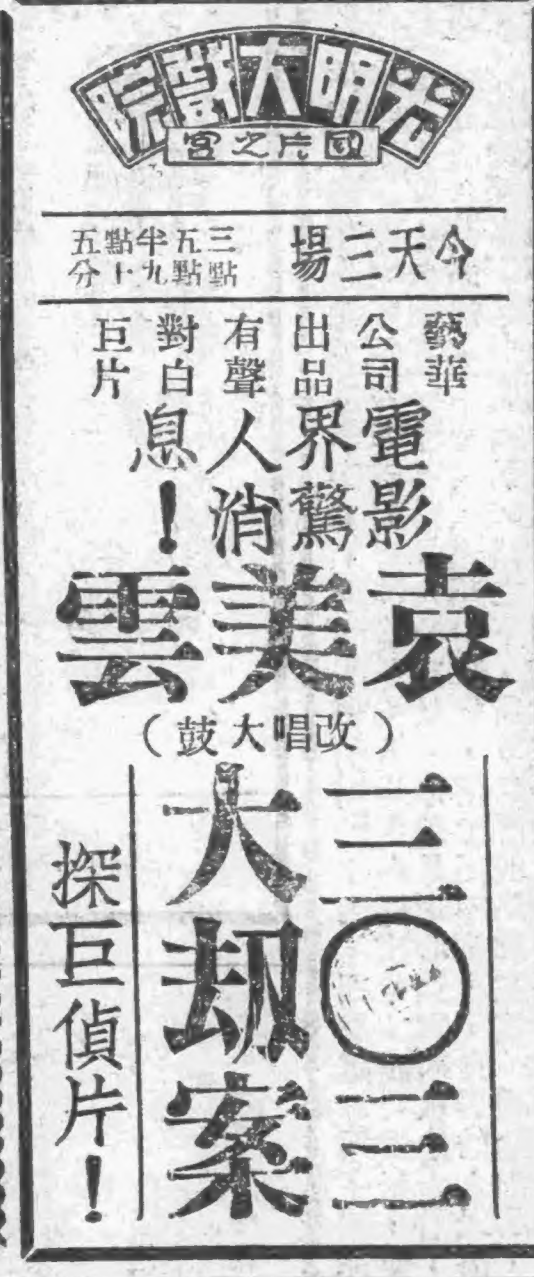 光明大戲院
國片之宮
今天三場
三點五點半九點十五分
藝華公司出品有聲對白巨片
電影界驚人消息!
袁美雲
(改唱大鼓)
三〇三
大劫案
探巨偵片!